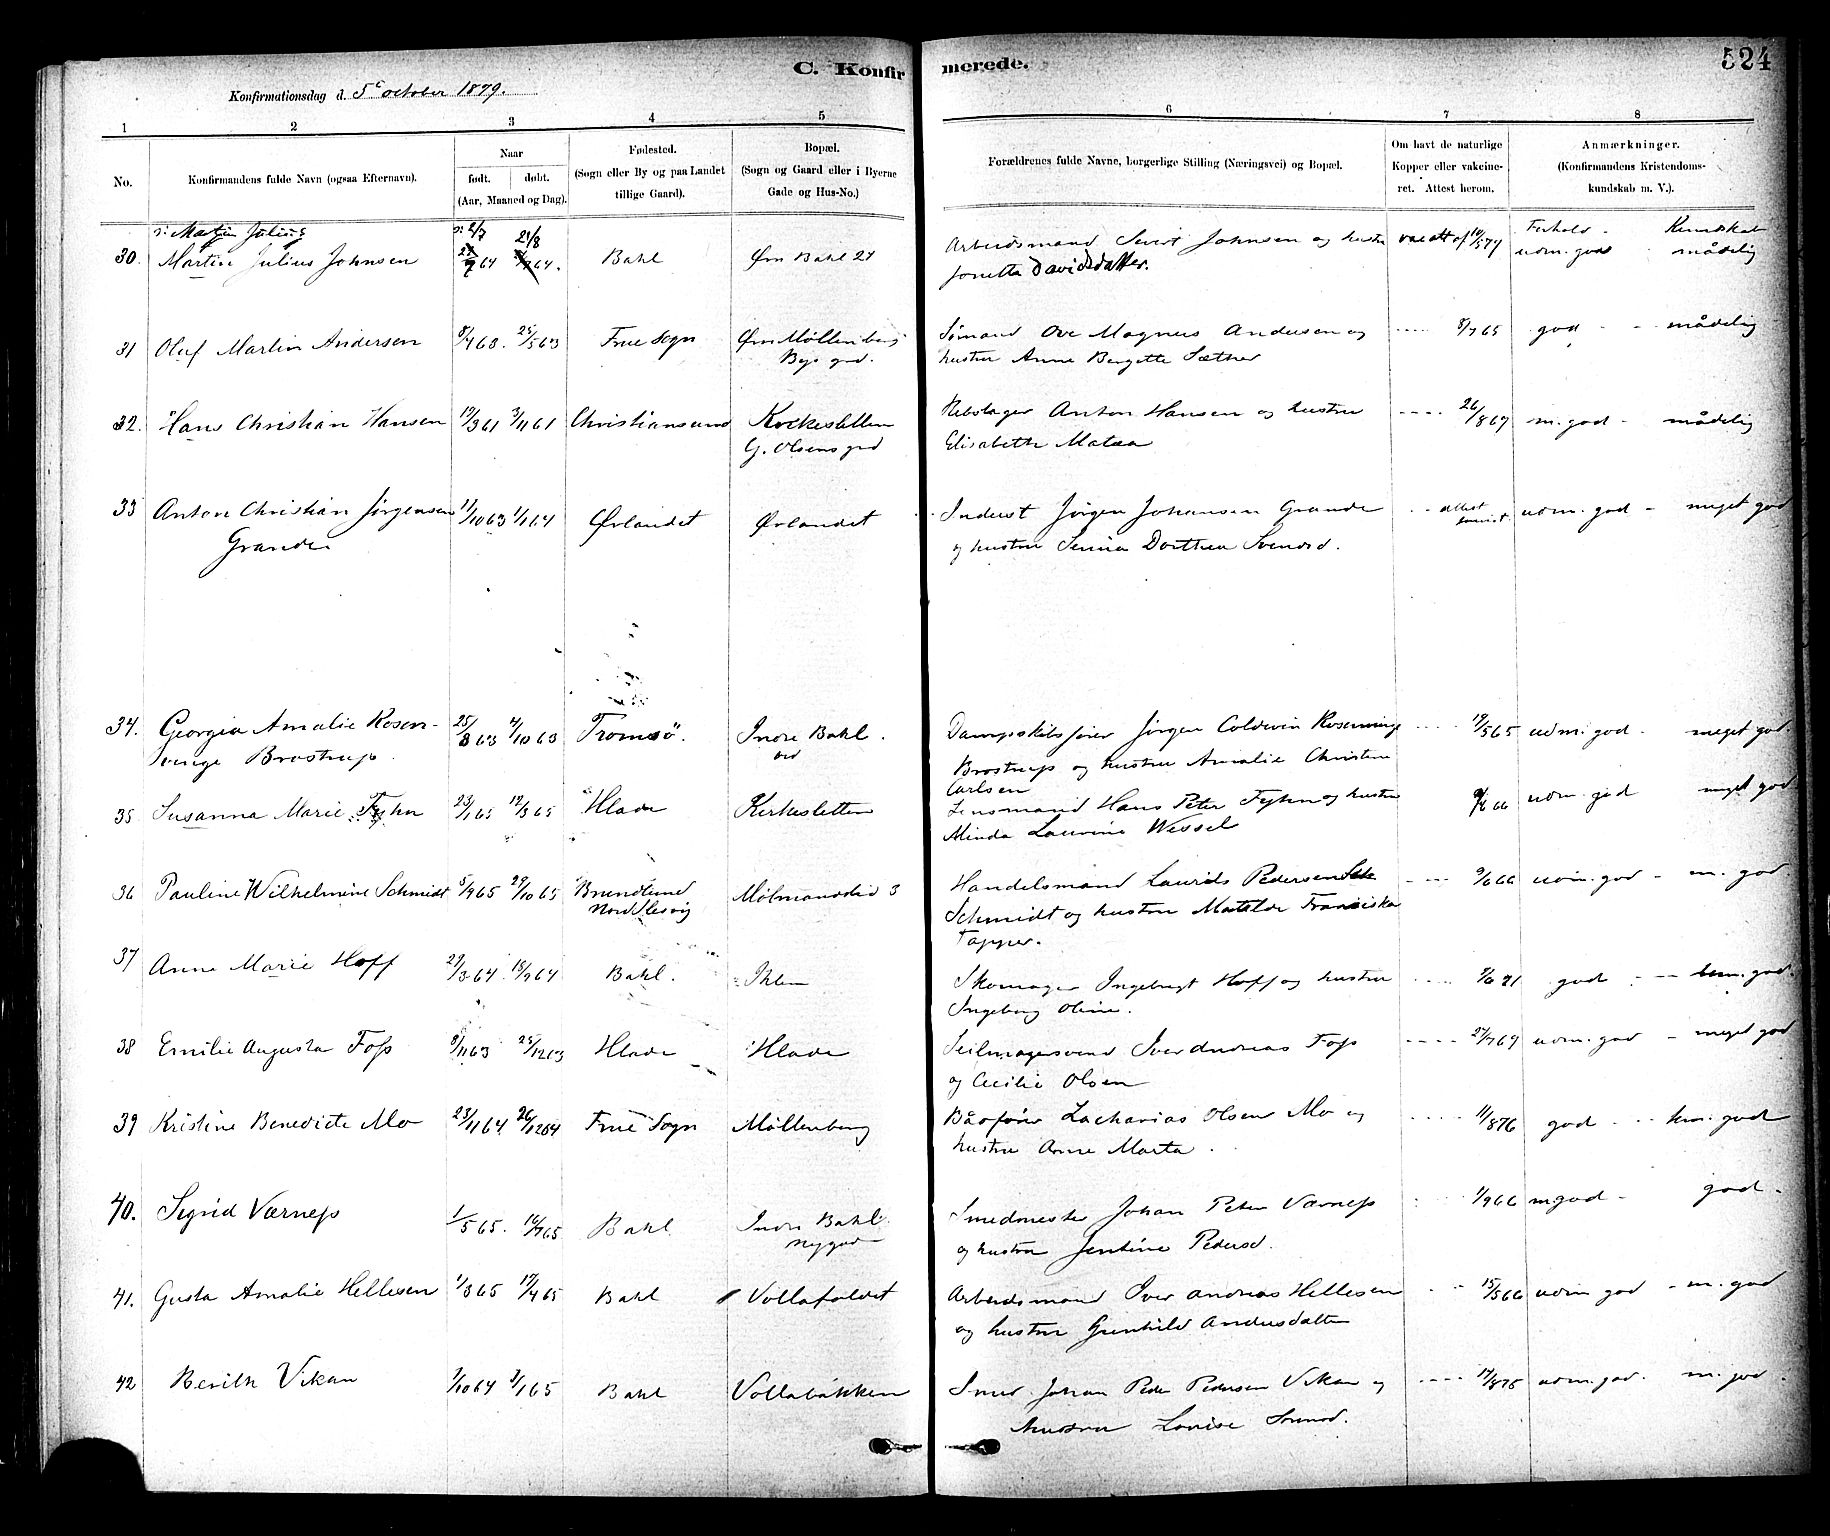 C. Konfirmerede.
524
Konfirmationsdag d. 5 October 1879.
1 2 3 4 5 6 7 8
No.
Konfirmandens fulde Navn (ogsaa Efternavn).
Naar
født. døbt.
(Aar, Maaned og Dag).
Fødested.
(Sogn eller By og paa Landet
tillige Gaard).
Bopæl.
(Sogn og Gaard eller i Byerne
Gade og Hus-No.)
Forældrenes fulde Navne, borgerlige Stilling (Næringsvei) og Bopæl.
Om havt de naturlige
Kopper eller vakcine-
ret. Attest herom.
Anmærkninger.
(Konfirmandens Kristendoms-
kundskab m. V.).
Martin Julius 2/7 21/8 Forhold - Kundskab
30. Martin Julius Johnsen Bakl Øvr Bakl 27 Arbeidsmand Sivert Johnsen og hustru udm. god mådelig
Jonetta Davidsdatter.
31 Oluf Martin Andersen 8/4 63. 25/5 63 Frue Sogn Øvr Møllenberg Sømand Ove Magnus Andersen og 8/7 65 god - mådelig
hustru Anne Bergette Sæther
32. Hans Christian Hansen 19/3 61 3/11 61 Christiansund Kirkesletten Rebslager Anton Hansen og hustru 26/8 67 m. god - mådelig
G. Olsens grd Elisabeth
33 Anton Christian Jørgensen 11/10 63 1/1 64 Ørlandet Ørlandet Inderst Jørgen Johansen Grande attest udm. god - meget god
Grande og hustru Dorthea Svendsd.
34. Georgia Amalie Rosen- 25/8 63 4/10 63 Tromsö. Indre Bakl. Dampskibsfører Jørgen Coldevin Rosenvinge 19/5 65 udm. god - meget god.
vinge Brostrup Brostrup og hustru Amalie Christine
Carlsen
35 Susanna Marie Fyhn 23/1 65 12/3 65 Hlade Kirkesletten Lensmand Hans Peter Fyhn og hustru udm. god meget god
Minda Lauvine Wessel
36 Pauline Wilhelmine Schmidt 5/9 65 29/10 65 Brundlund Handelsmand Laurids Pedersen 9/6 66 udm. god - m. god
Nord Slesvig Schmidt og hustru Matilde Franciska
Tapper.
37 Anne Marie Hoff 27/3 64 Bakl. Ihlen Skomager Ingebrigt Hoff og hustru god - god.
Ingeborg Oline.
38 Emilie Augusta Foss 8/11 63 25/12 63 Hlade Hlade Seilmagersvend Iver Andreas Foss 27/7 69 udm. god - meget god
og Cecilie Olsen
39 Kristine Benedicte Mo 23/11 64. 26/12 64 Frue Sogn Møllenberg Zacharias Olsen Mo og 11/8 76 god - god
hustru Anne Marta.
40. Sigrid Værness 1/5 65. 16/7 65 Bakl Indre Bakl. Smedmester Johan Peter Værness 1/9 66 m god - god -
Nygade og hustru Jentine Pedersd.
41. Gusta Amalie Hellesen 1/3 65 17/4 65 Bakl Vollafaldet Arbeidsmand Iver Andreas Hellesen 15/5 66 udm god - m. god
og hustru Gunhild Andersdatter
42 Berith Vikan 7/10 64 1/1 65 Bakl Vollabakken Smed Johan Peder Pedersen Vikan og 17/8 75 udm. god. m. god.
hustru Louise